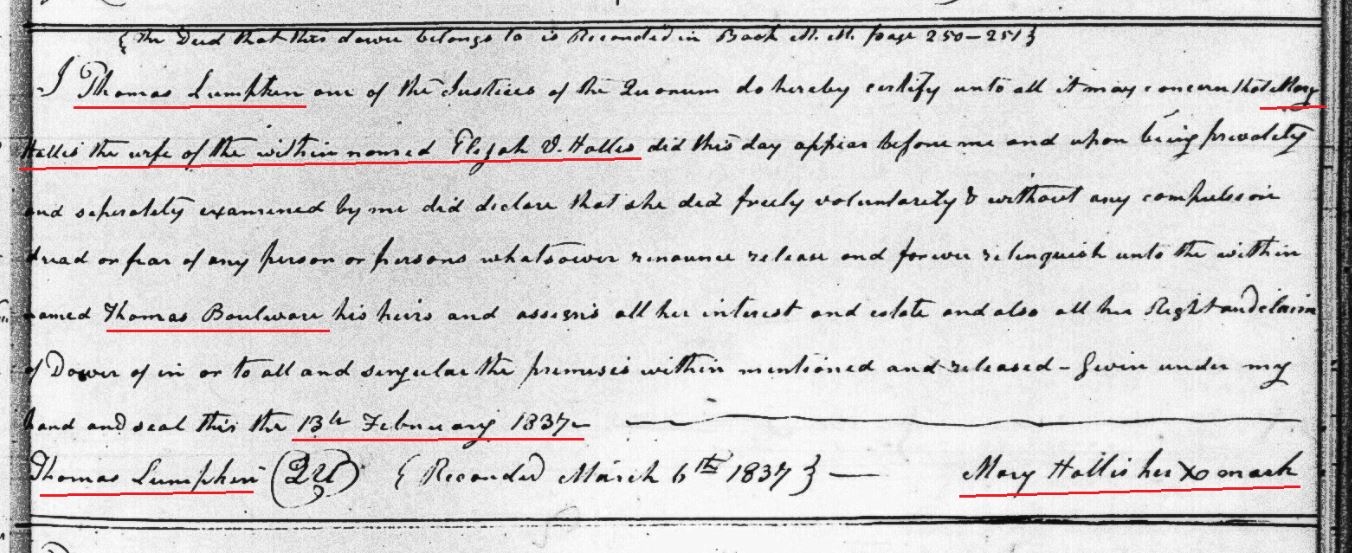 {The Deed that this dower belongs to is Recorded in Book M. M. page 250-251}
I Thomas Lumpkin one of the Justices of the Quorum do hereby certify unto all it may concern that Mary
Hollis the wife of the within named Elijah V Hollis did this day appear before me and upon being privately
and seperately examined by me did declare that she did freely voluntarily & without any compulsion
dread or fear of any person or persons whatsoever renounce release and forever relinquish unto the within
named Thomas Boulware his heirs and assigns all her interest and estate and also all her Right and claim
of Dower of in or to all and singular the premises within mentioned and released - Given under my
hand and seal this the 13th February 1837
Thomas Lumpkin (QU) {Recorded March 6th 1837} — Mary Hollis her X mark